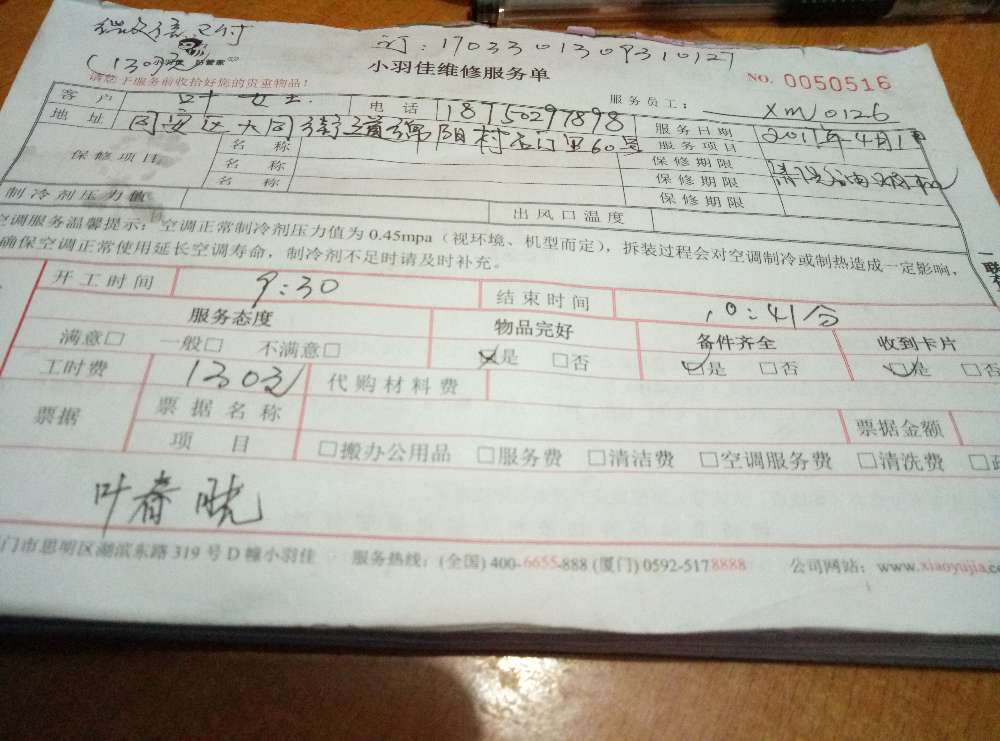 微信支付
(130元)
订:1703301309310127
小羽佳维修服务单
NO. 0050516
请您于服务前收拾好您的贵重物品!
服务员工: XM0126
客户 叶女士. 电话 18750297898 服务日期 2017年4月1日
地址 同安区大同街道 阳村石门里60号 服务项目 清洗油烟机
保修项目 名称 保修期限
名称 保修期限
名称 保修期限
制冷剂压力值 出风口温度
空调服务温馨提示:空调正常制冷剂压力值为0.45mpa(视环境、机型而定),拆装过程会对空调制冷或制热造成一定影响,
确保空调正常使用延长空调寿命,制冷剂不足时请及时补充。
开工时间 9:30 结束时间 10:41分
服务态度 物品完好 备件齐全 收到卡片
满意□ 一般□ 不满意□ ☑是 □否 ☑是 □否 ☑是 □否
工时费 130元 代购材料费
票据 票据名称 票据金额
项目 □搬办公用品 □服务费 □清洁费 □空调服务费 □清洗费
叶春晓
门市思明区湖滨东路319号D幢小羽佳 服务热线:(全国)400-6655-888(厦门)0592-5178888 公司网站:www.xiaoyujia.co